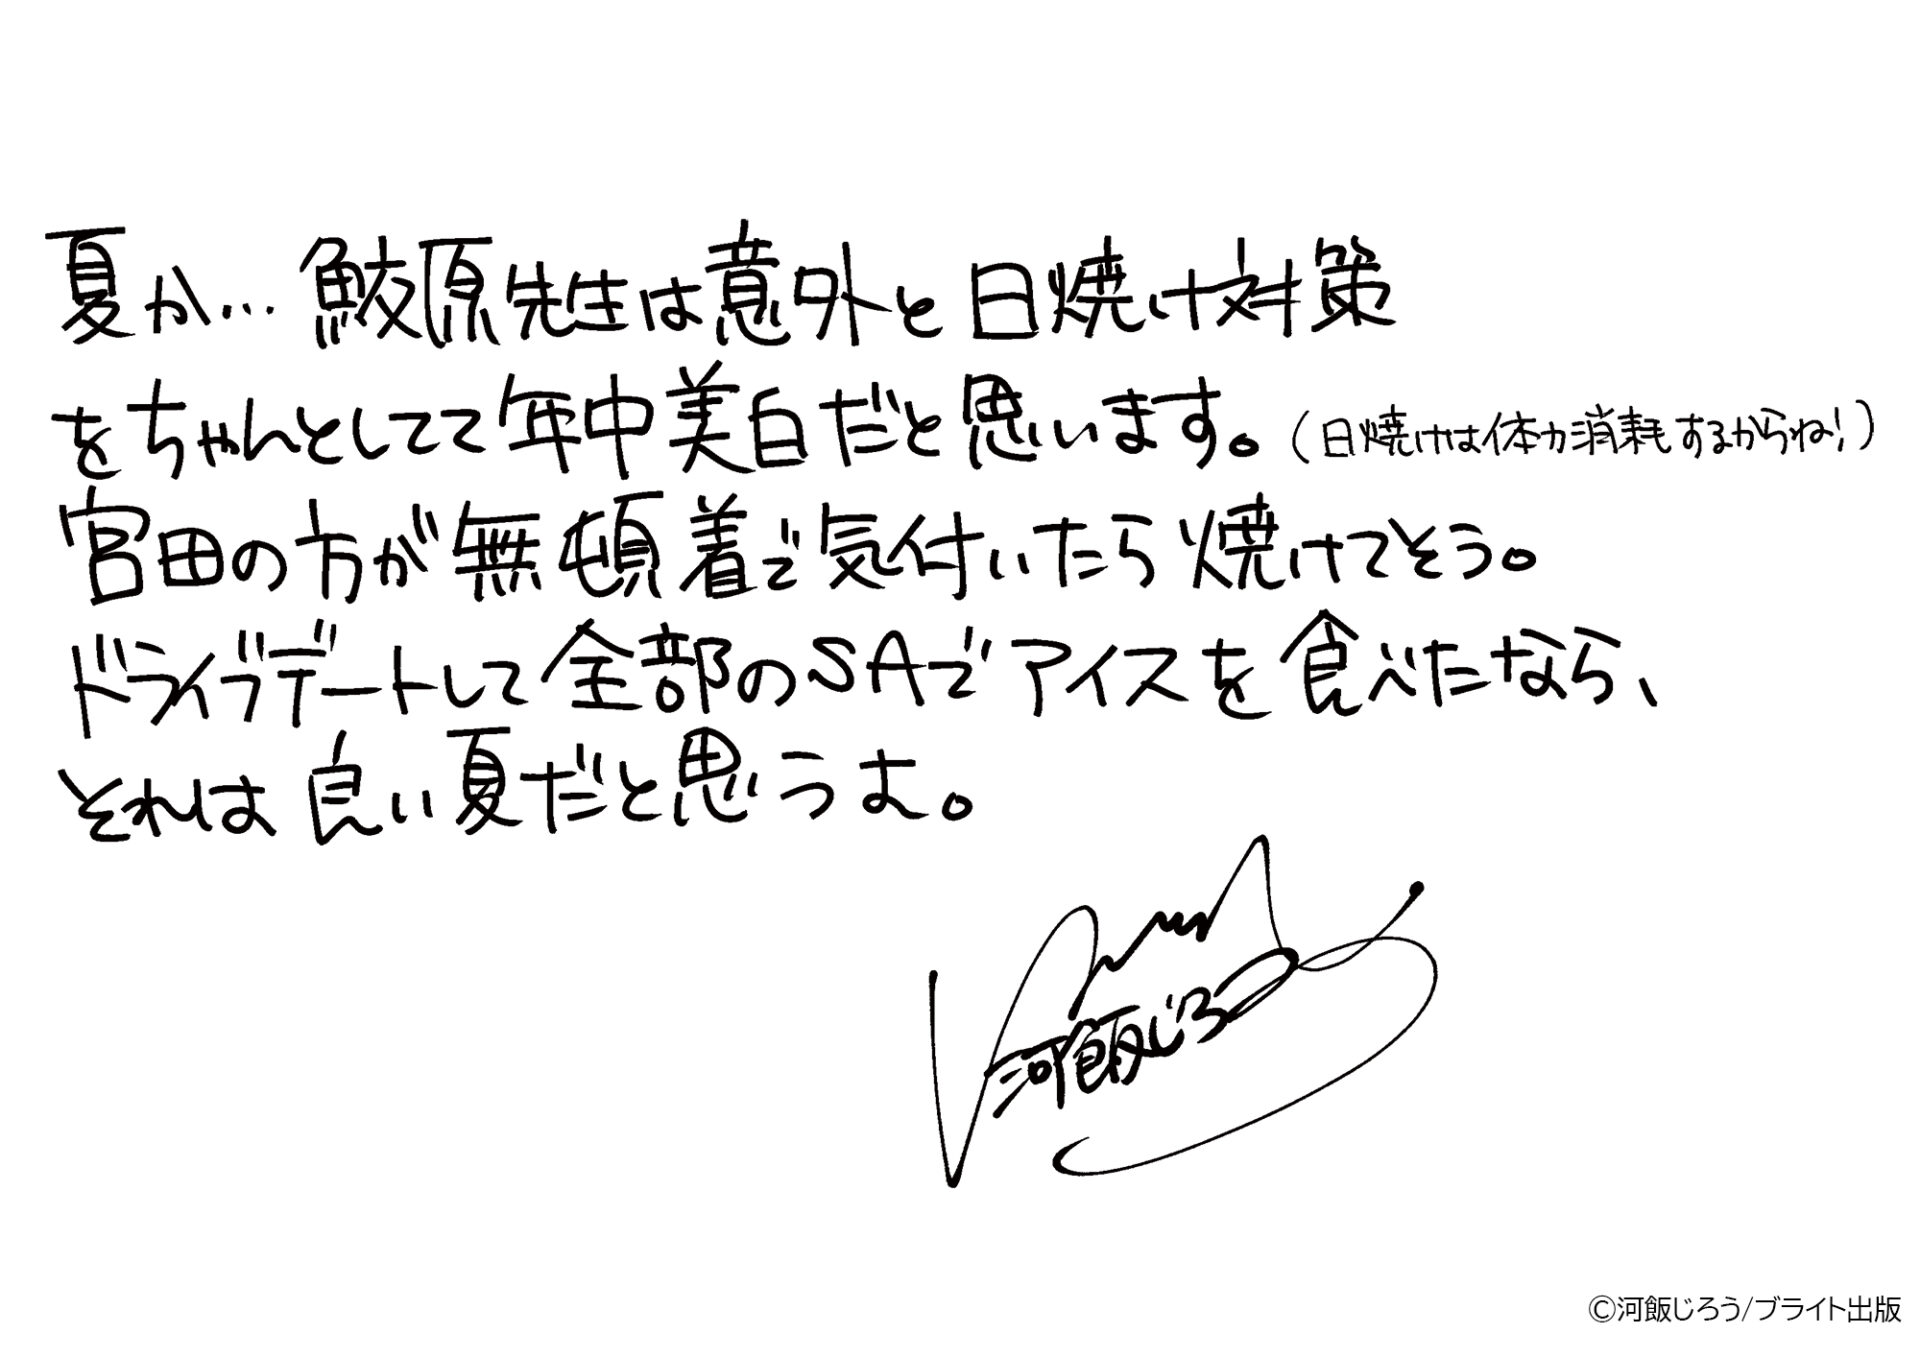 夏か…鮫原先生は意外と日焼け対策
をちゃんとしてて年中美白だと思います。(日焼けは体力消耗するからね!)
宮田の方が無頓着で気付いたら焼けてそう。
ドライブデートして全部のSAでアイスを食べたなら、
それは良い夏だと思うな。
河飯じろう
©河飯じろう/ブライト出版